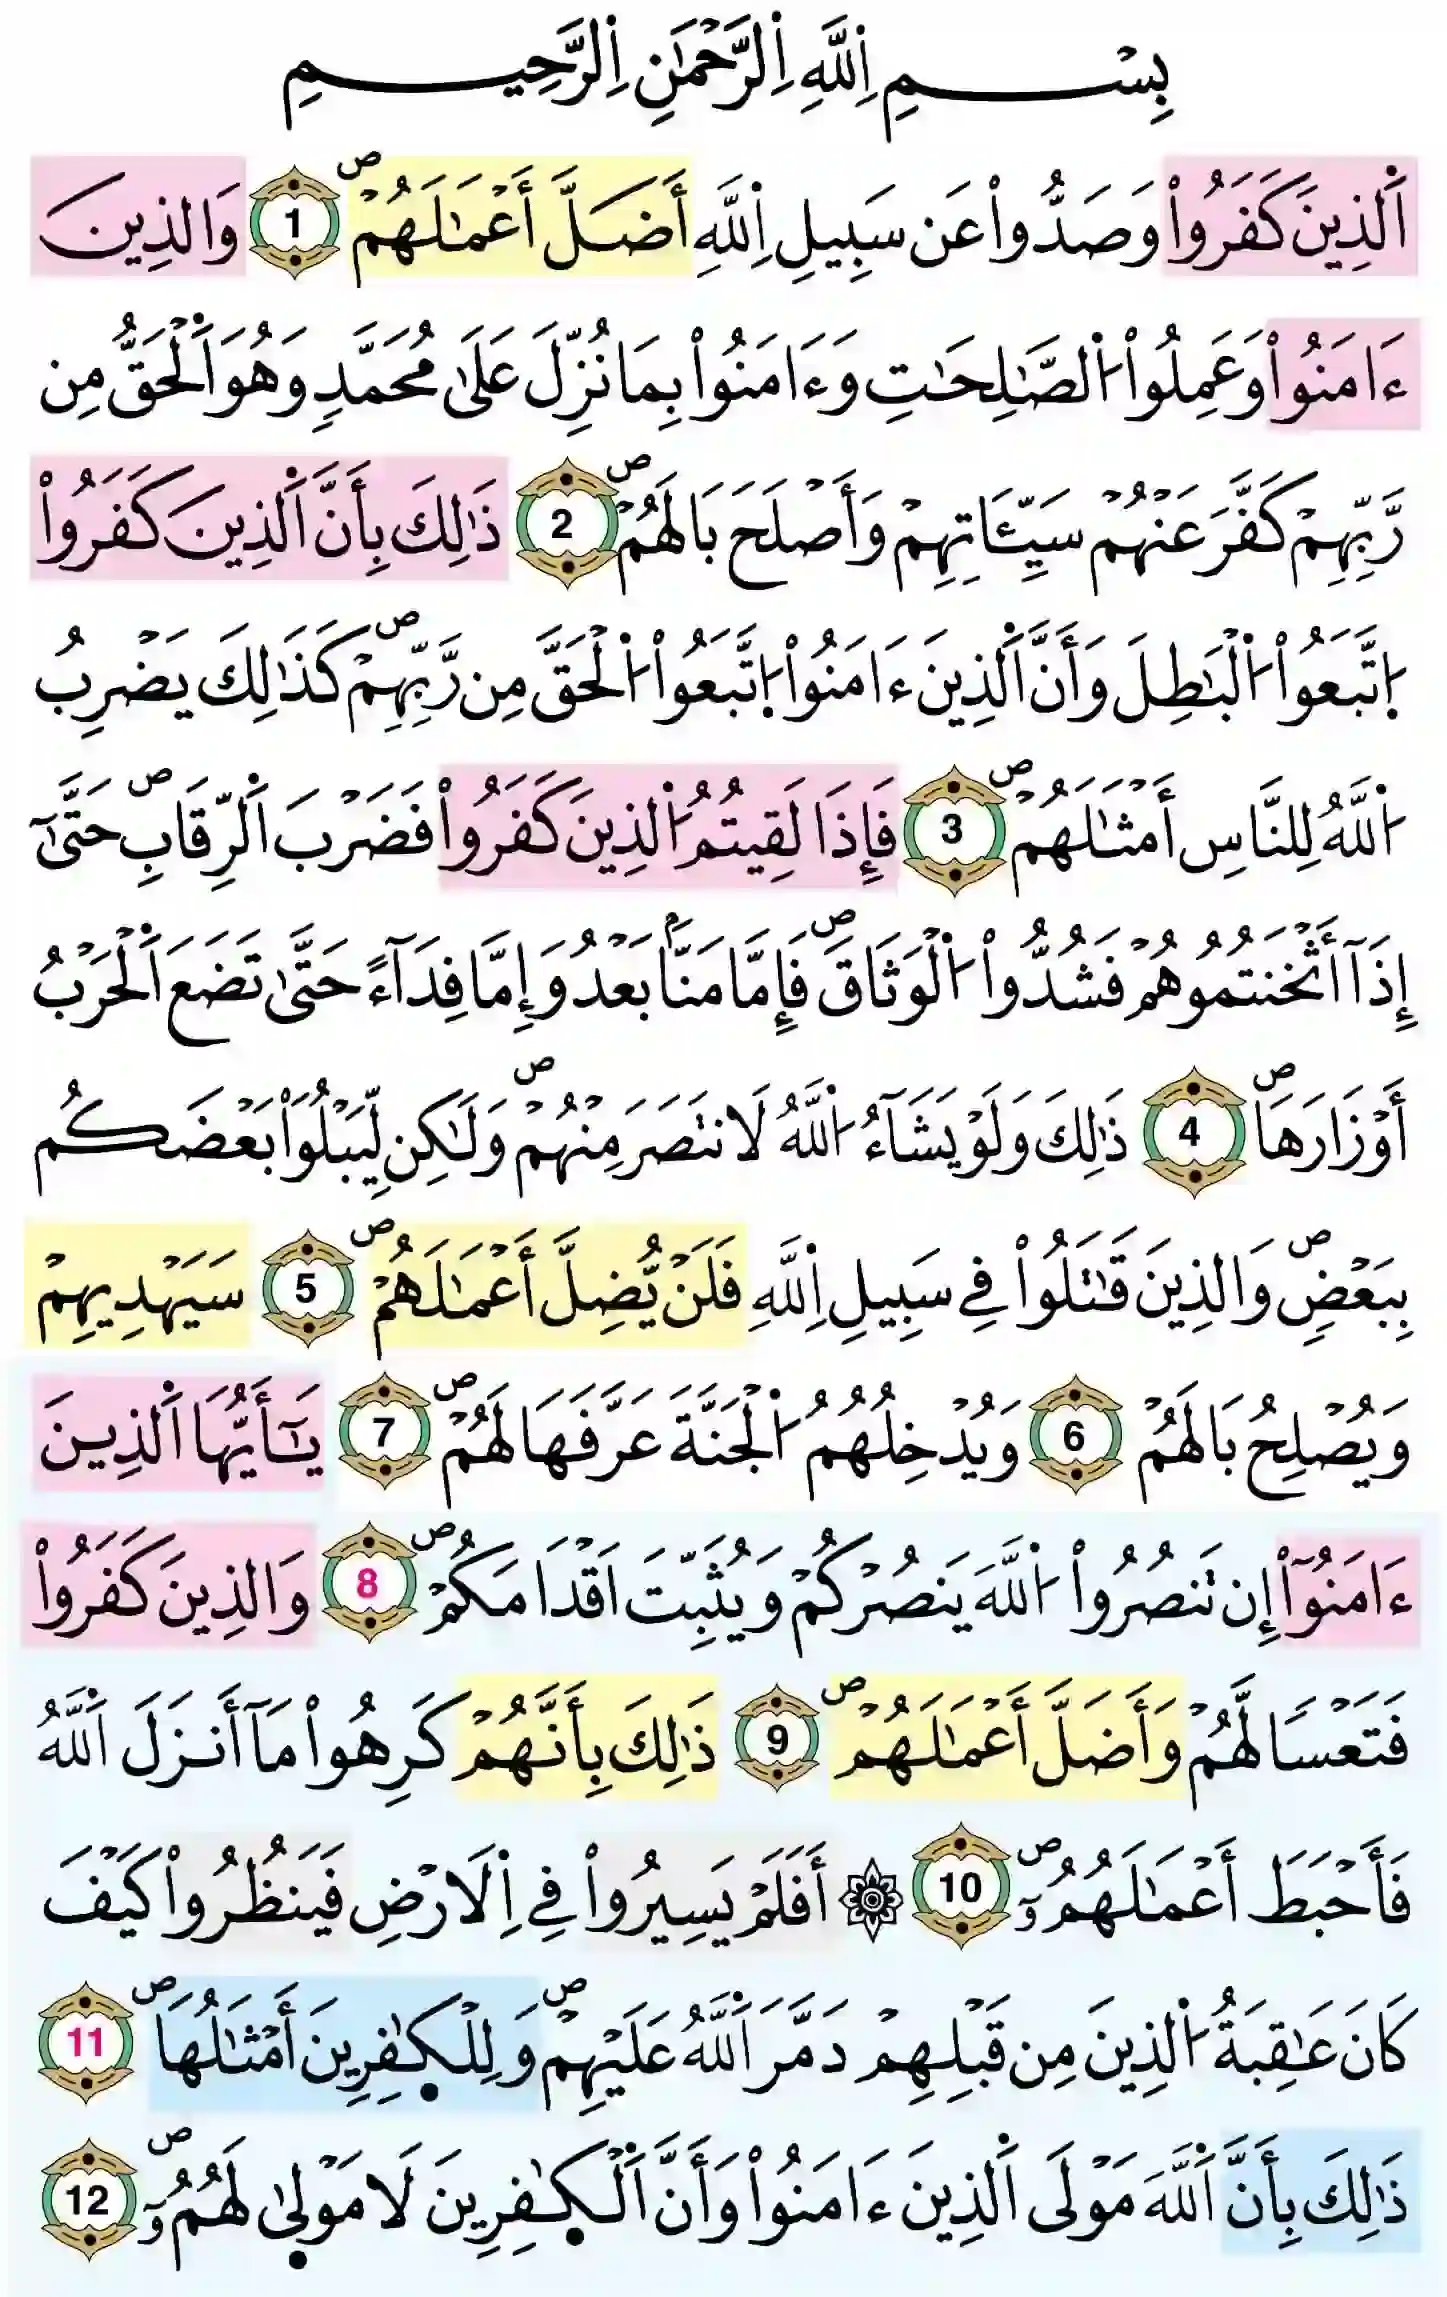 بِسْمِ اِ۬للَّهِ اِ۬لرَّحْمَٰنِ اِ۬لرَّحِيمِ
اَ۬لذِينَ كَفَرُواْ وَصَدُّواْ عَن سَبِيلِ اِ۬للَّهِ أَضَلَّ أَعْمَٰلَهُمْۖ 1 وَالذِينَ
ءَامَنُواْ وَعَمِلُواْ اُ۬لصَّٰلِحَٰتِ وَءَامَنُواْ بِمَا نُزِّلَ عَلَىٰ مُحَمَّدٍ وَهُوَ اَ۬لْحَقُّ مِن
رَّبِّهِمْ كَفَّرَ عَنْهُمْ سَيِّـَٔاتِهِمْ وَأَصْلَحَ بَالَهُمْۖ 2 ذَٰلِكَ بِأَنَّ اَ۬لذِينَ كَفَرُواْ
اُ۪تَّبَعُواْ اُ۬لْبَٰطِلَ وَأَنَّ اَ۬لذِينَ ءَامَنُواْ اُ۪تَّبَعُواْ اُ۬لْحَقَّ مِن رَّبِّهِمْۖ كَذَٰلِكَ يَضْرِبُ
اُ۬للَّهُ لِلنَّاسِ أَمْثَٰلَهُمْۖ 3 فَإِذَا لَقِيتُمُ اُ۬لذِينَ كَفَرُواْ فَضَرْبَ اَ۬لرِّقَابِۖ حَتَّىٰٓ
إِذَآ أَثْخَنتُمُوهُمْ فَشُدُّواْ اُ۬لْوَثَاقَۖ فَإِمَّا مَنّاَۢ بَعْدُ وَإِمَّا فِدَآءً حَتَّىٰ تَضَعَ اَ۬لْحَرْبُ
أَوْزَارَهَاۖ 4 ذَٰلِكَ وَلَوْ يَشَآءُ اُ۬للَّهُ لَانتَصَرَ مِنْهُمْۖ وَلَٰكِن لِّيَبْلُوَاْ بَعْضَكُم
بِبَعْضٖۖ وَالذِينَ قَٰتَلُواْ فِي سَبِيلِ اِ۬للَّهِ فَلَنْ يُّضِلَّ أَعْمَٰلَهُمْۖ 5 سَيَهْدِيهِمْ
وَيُصْلِحُ بَالَهُمْ 6 وَيُدْخِلُهُمُ اُ۬لْجَنَّةَ عَرَّفَهَا لَهُمْۖ 7 يَٰٓأَيُّهَا اَ۬لذِينَ
ءَامَنُوٓاْ إِن تَنصُرُواْ اُ۬للَّهَ يَنصُرْكُمْ وَيُثَبِّتَ اَقْدَامَكُمْۖ 8 وَالذِينَ كَفَرُواْ
فَتَعْساٗ لَّهُمْ وَأَضَلَّ أَعْمَٰلَهُمْۖ 9 ذَٰلِكَ بِأَنَّهُمْ كَرِهُواْ مَآ أَنزَلَ اَ۬للَّهُ
فَأَحْبَطَ أَعْمَٰلَهُمُۥٓۖ 10 ۞ أَفَلَمْ يَسِيرُواْ فِي اِ۬لَارْضِ فَيَنظُرُواْ كَيْفَ
كَانَ عَٰقِبَةُ اُ۬لذِينَ مِن قَبْلِهِمْ دَمَّرَ اَ۬للَّهُ عَلَيْهِمْۖ وَلِلْكٰ۪فِرِينَ أَمْثَٰلُهَاۖ 11
ذَٰلِكَ بِأَنَّ اَ۬للَّهَ مَوْلَى اَ۬لذِينَ ءَامَنُواْ وَأَنَّ اَ۬لْكٰ۪فِرِينَ لَا مَوْل۪ىٰ لَهُمُۥٓۖ 12